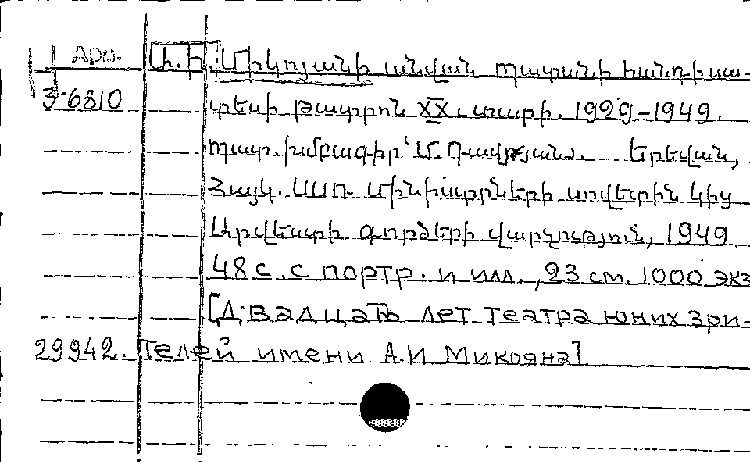 Арм. Ա. Ի. Միկոյանի անվան պատանի հանդիսա-
3-6810 տեսի թատրոն XX տարի. 1929-1949.
պատ. խմբագիր՝ Մ. Դավթյան. Երեվան,
Հայկ. ՍՍՌ Մինիստրների սովետին կից
Արվեստի գործերի վարչություն, 1949
48 с. с портр. и илл., 23 см. 1000 экз
[Двадцать лет театра юных зри-
29942. телей имени А.И Микояна]